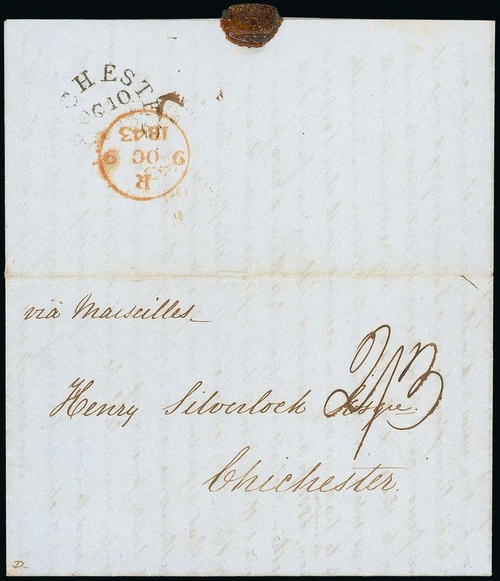 CHESTE
OC 10
1843
R
9 OC 9
1843
viâ Marseilles
2/3
Henry Silverlock Esqre.
Chichester.
D